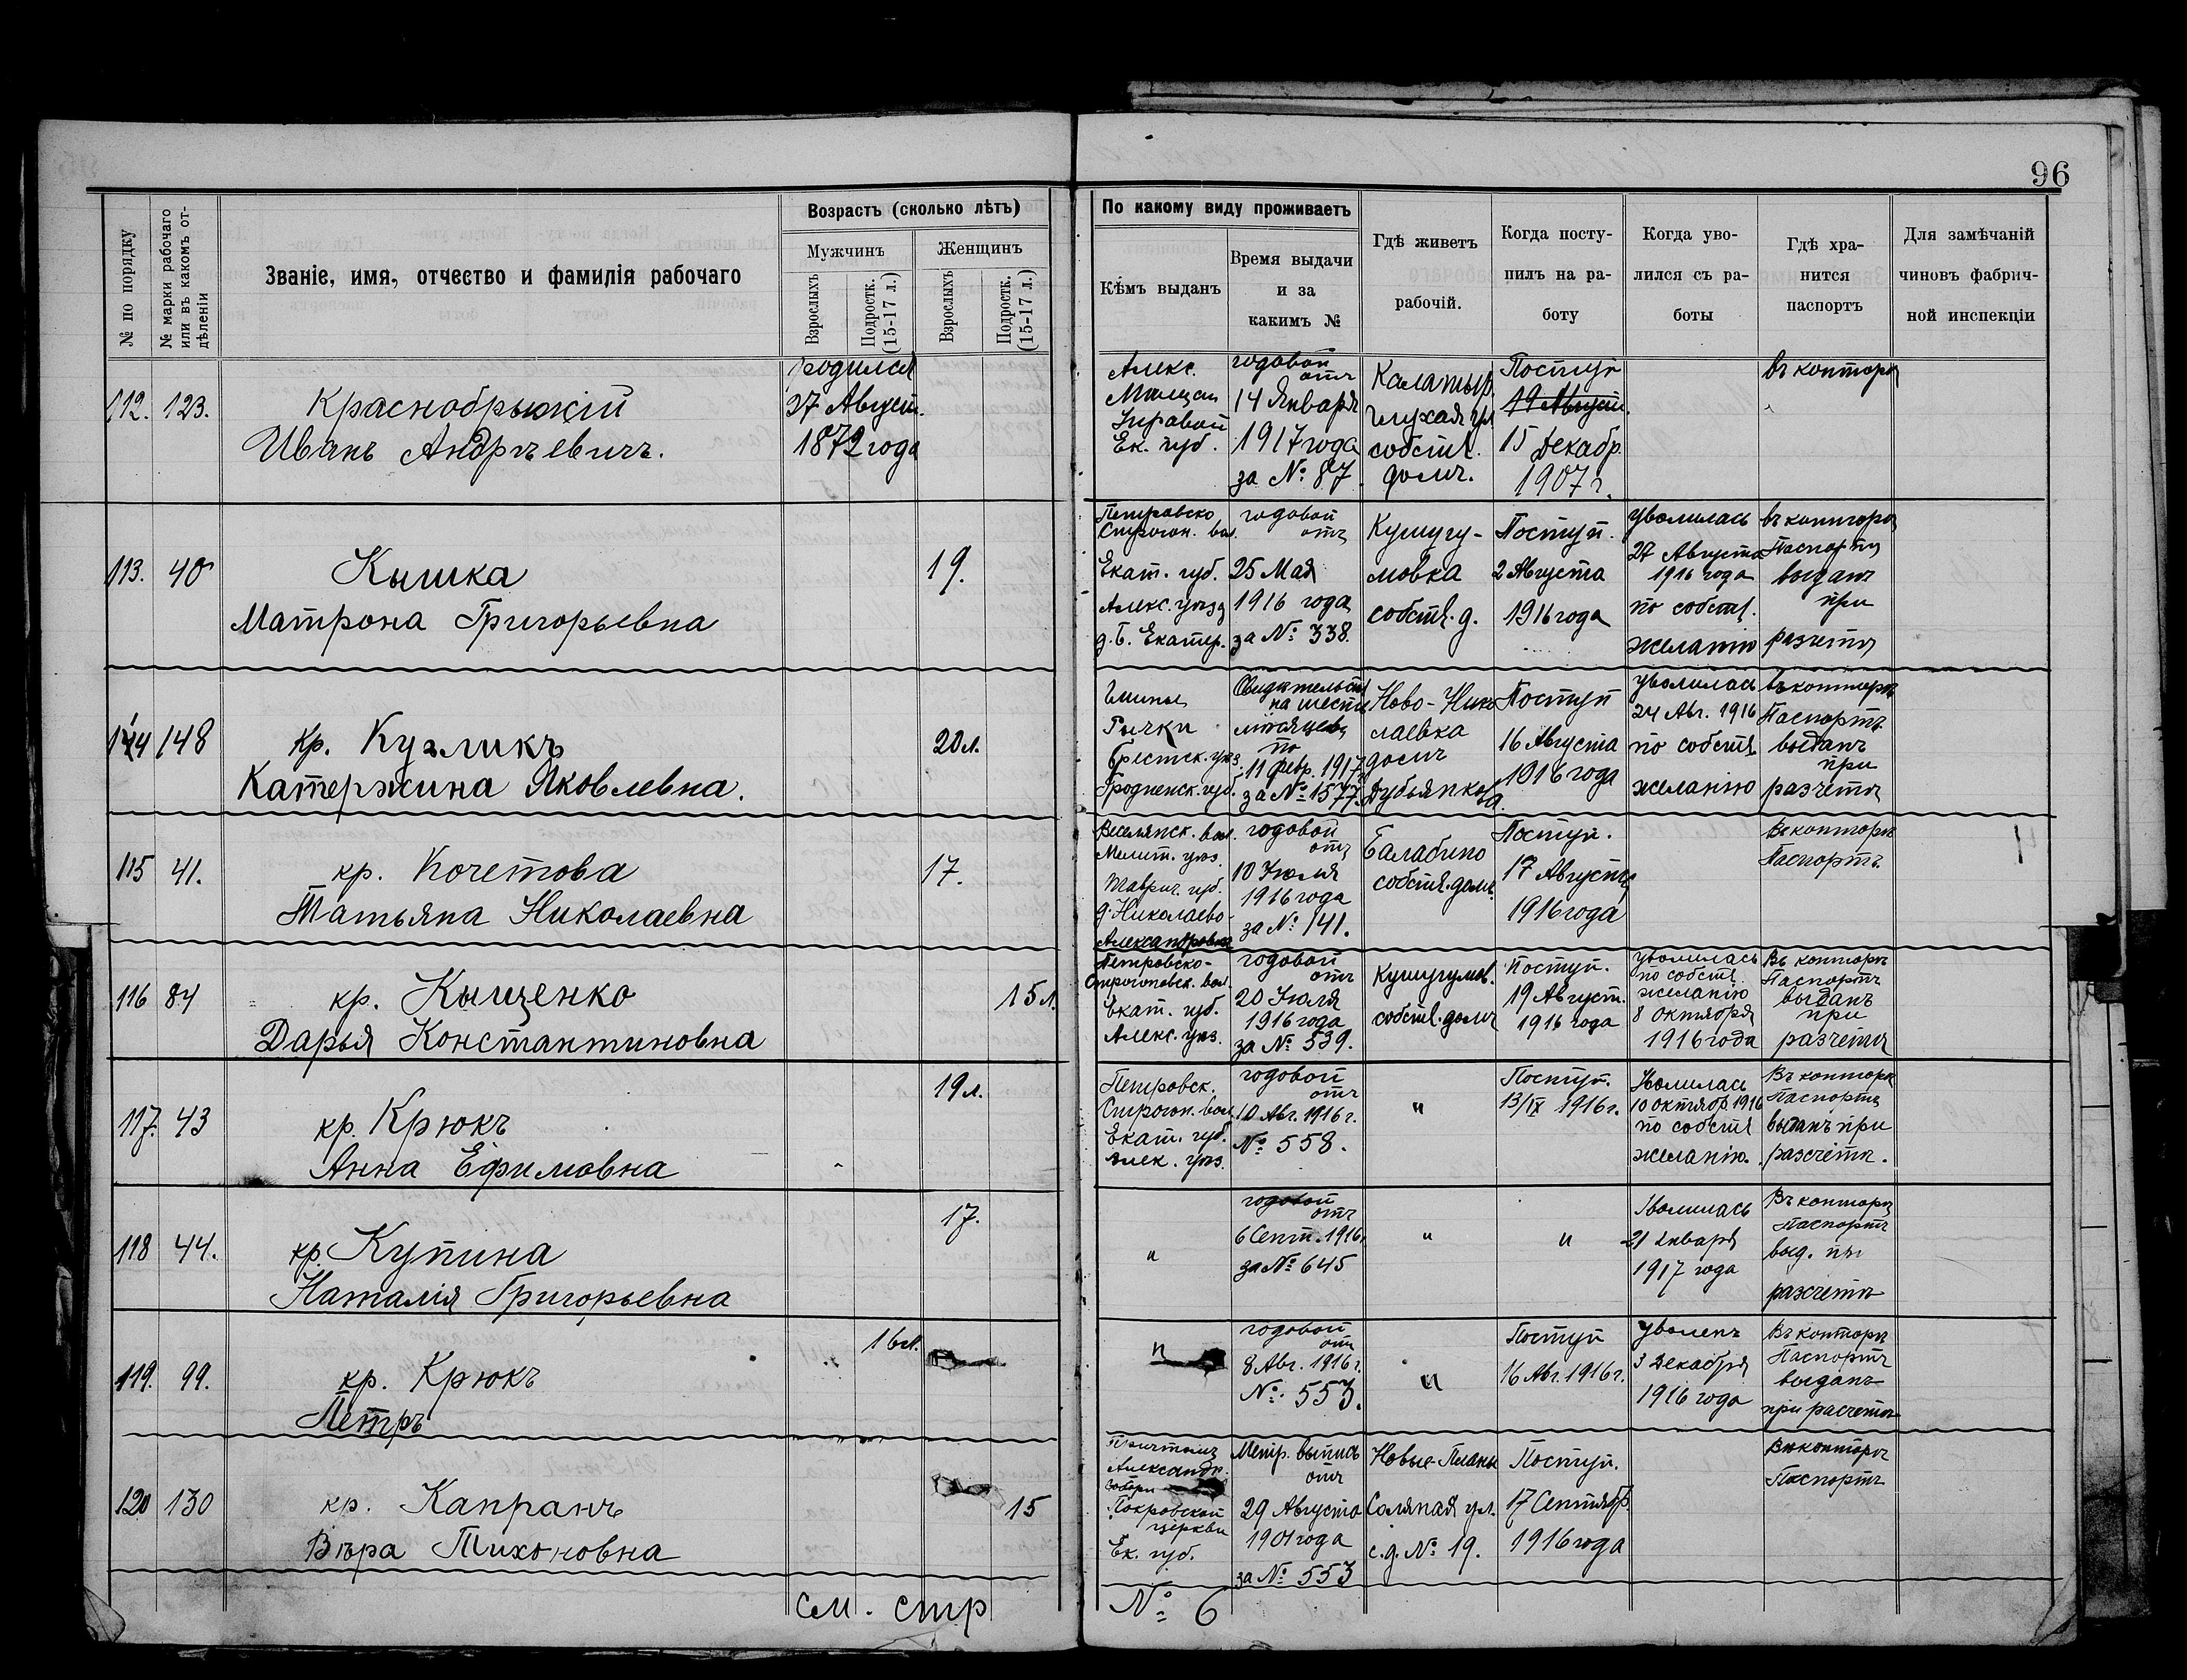 96
№ по порядку
№ марки рабочаго или въ какомъ от-дѣленіи
Званіе, имя, отчество и фамилія рабочаго
Возрастъ (сколько лѣтъ)
Мужчинъ
Женщинъ
Взрослыхъ
Подростк. (15-17 л.)
Взрослыхъ
Подростк. (15-17 л.)
По какому виду проживаетъ
Кѣмъ выданъ
Время выдачи
и за
какимъ №
Гдѣ живетъ
рабочій.
Когда посту-
пилъ на ра-
боту
Когда уво-
лился съ ра-
боты
Гдѣ хра-
нится
паспортъ
Для замѣчаній
чиновъ фабрич-
ной инспекціи
112. 123.
Краснобрыжій
Иванъ Андрѣевичъ.
родился
27 Август.
1872 года
Алекс.
Мѣщан
Управой
Ек. губ.
годовой
отъ
14 Января
1917 года
за № 87.
глухая ул
собств.
домъ.
Поступ
19 Август.
15 Декабр.
1907 г.
въ конторѣ
113. 40
Кышка
Матрона Григорьевна
19.
Петровско
Строгон. вол.
Екат. губ.
Алекс. уѣзд
д. Б. Екатер.
годовой
отъ
25 Мая
1916 года
за № 338.
Кушугу-
мовка
собств. д.
Поступ.
2 Августа
1916 года
уволилась
27 Августа
1916 года
по собств.
желанію
въ конторѣ
Паспортъ
выданъ
при
разчетѣ
114 148
кр. Кузликъ
Катержина Яковлевна.
20 л.
Гмины
Рычки
Брестск. уѣз.
Гродненск. губ.
Свидѣтельств
на шести
мѣсяцевъ
по
11 февр. 1917
за № 1577.
Ново-Нико
лаевка
домъ
Дубьянкова
Поступ
16 Августа
1916 года
уволилась
24 Авг. 1916
по собств
желанію
въ конторѣ
Паспортъ
выданъ
при
разчетѣ
115 41.
кр. Кочетова
Татьяна Николаевна
17.
Веселянск. вол.
Мелит. уѣз.
Таврич. губ.
д. Николаево-
Александровка
годовой
отъ
10 Іюля
1916 года
за № 141.
Балабино
собств. домъ
Поступ.
17 Августа
1916 года
Въ конторѣ
Паспортъ
116 84
кр. Кыщенко
Дарья Константиновна
15 л.
Петровско-
Строгоновск. вол.
Екат. губ.
Алекс. уѣз.
годовой
отъ
20 Іюля
1916 года
за № 539.
Кушугумов.
собств. домъ
Поступ.
19 Август.
1916 года
уволилась
по собств
желанію
8 октября
1916 года
Въ конторѣ
Паспортъ
выданъ
при
разчетѣ
117. 43
кр. Крюкъ
Анна Ефимовна
19 л.
Петровск.
Строгон. вол.
Екат. губ.
Алек. уѣз.
годовой
отъ
10 Авг. 1916 г.
№ 558.
"
Поступ.
13/IX 1916 г.
Уволилась
10 октябр. 1916
по собств
желанію.
Въ конторѣ
Паспортъ
выданъ при
разсчетѣ.
118 44.
кр. Купина
Наталія Григорьевна
17.
"
годовой
отъ
6 Сент. 1916 г.
за № 645
"
"
Уволилась
21 января
1917 года
Въ конторѣ
Паспортъ
выд. при
разсчетѣ
119. 99.
кр. Крюкъ
Петръ
16 л.
"
годовой
отъ
8 Авг. 1916 г.
№ 553.
"
Поступ
16 Авг. 1916 г.
уволенъ
3 Декабря
1916 года
Въ конторѣ
Паспортъ
выданъ
при расчетѣ
120 130
кр. Капранъ
Вѣра Тихоновна
15
Причтомъ
Александр.
Собори
Покровской
церкви
Ек. губ.
Метр. выпись
отъ
29 Августа
1901 года
за № 553
Новые Планы
Соляная ул.
с. д. № 19.
Поступ.
17 Сентябр.
1916 года
Въ конторѣ
Паспортъ
см. стр № 6